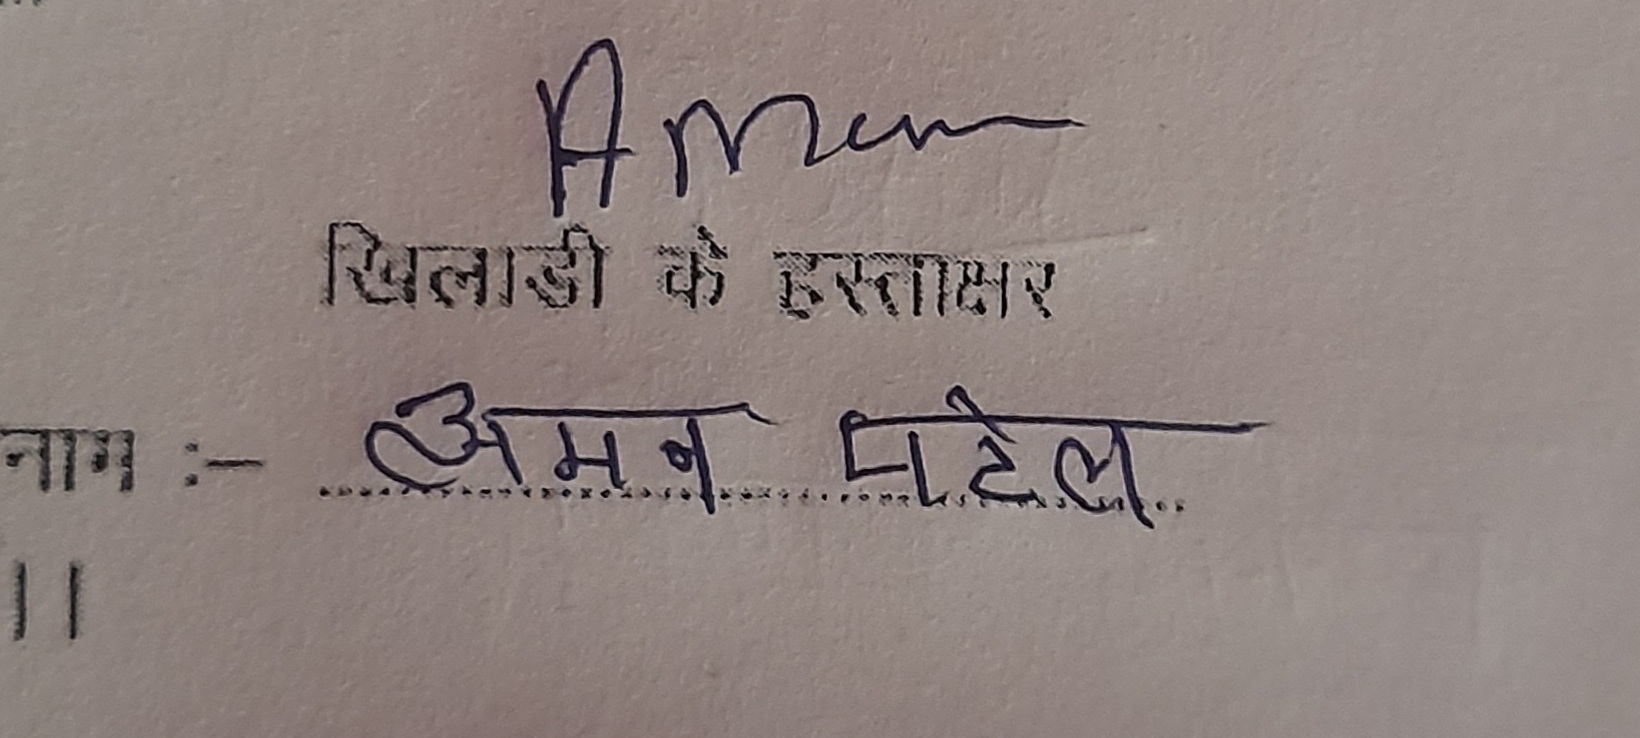 Aman
खिलाडी के हस्ताक्षर
नाम :- अमन पटेल
||